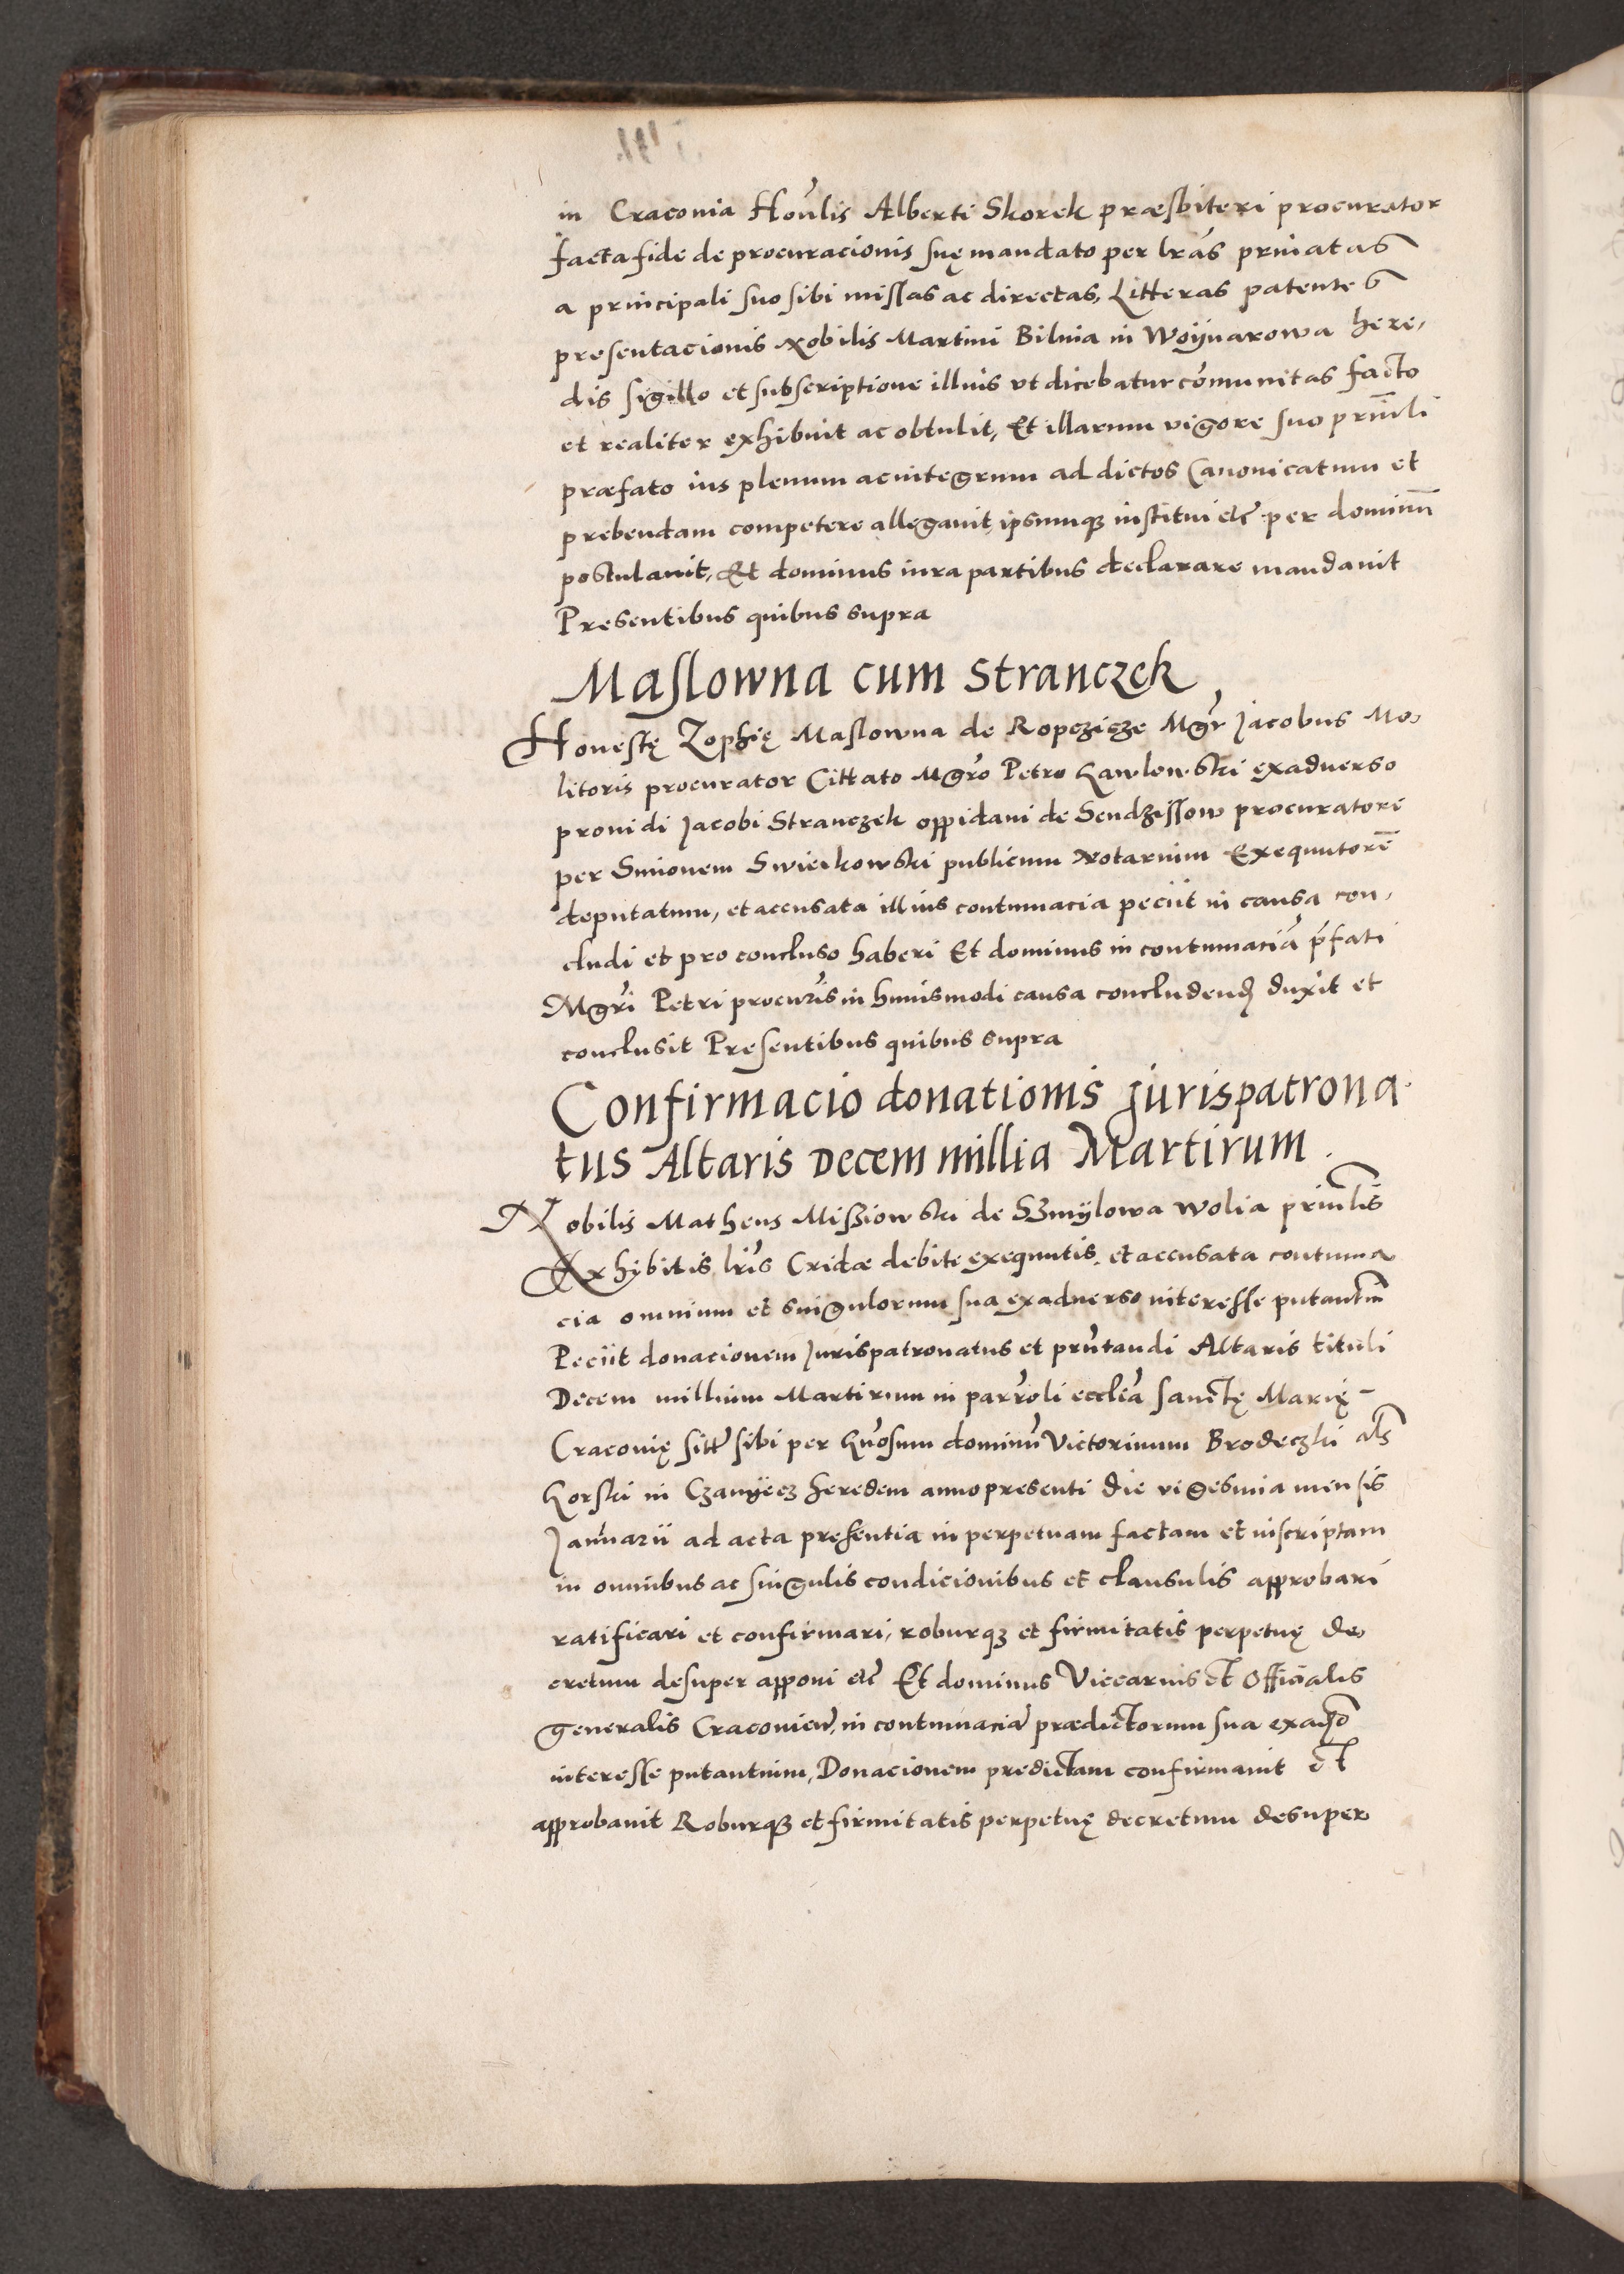 in Cracovia Hon̄lis Alberti Skorek præsbiteri procurator
facta fide de procuracionis suę mandato per lr̄as priuatas
a principali suo sibi missas ac directas, Litteras patentes
presentacionis Nobilis Martini Bilina in Woÿnarowa here,
dis sigillo et subscriptione illius vt dicebatur com̄unitas facto
et realiter exhibuit ac obtulit, Et illarum vigore suo prin̄li
præfato ius plenum ac integrum ad dictos Canonicatum et
prebendam competere allegauit, ipsumqȝ institui etc̄ per dominū
postulauit, Et dominus iura partibus declarare mandauit
Presentibus quibus supra
Maslowna cum Stranczek
Honestę Zophię Maslowna de Ropczicze Mgr̄ Jacobus Mo,
litoris procurator Cittato Mgr̄o Petro Gawlowski exaduerso
prouidi Jacobi Stranczek oppidani de Sendzissow procuratore
per Simonem Swierkowski publicum Notarium Exequutorē
deputatum, et accusata illius contumacia peciit in causa con,
cludi et pro concluso haberi Et dominus in contumaciā p̄fati
Mgr̄i Petri procur̄is in huiusmodi causa concludend̄ duxit et
conclusit Presentibus quibus supra
Confirmacio donationis Jurispatrona
tus Altaris Decem millia Martirum.
Nobilis Matheus Missiowski de Szmÿlowa Wolia prin̄lis
Exhybitis lr̄is Cridæ debite exequutis, et accusata contuma
cia omnium et singulorum sua exaduerso interesse putantiū
Peciit donacionem Jurispatronatus et prn̄tandi Altaris tituli
Decem millium Martirum in parr̄oli eccliā Sanctę Marię -
Cracouię sitt̄ sibi per Gn̄osum dominū Victorinum Brodeczki als̄
Gorski in Czanÿecz heredem anno presenti die vigesima mensis
Januarii ad acta presentia in perpetuam factam et inscriptam
in omnibus ac singulis condicionibus et clausulis approbari
ratificari et confirmari, roburqȝ et firmitatis perpetuę de,
cretum desuper apponi etc̄ Et dominus Viccarius et Officialis
generalis Cracouien̄, in contumaciā prædictorum sua exad̄so
interesse putantium, Donacionem predictam confirmauit et
approbauit Roburqȝ et firmitatis perpetuę decretum desuper